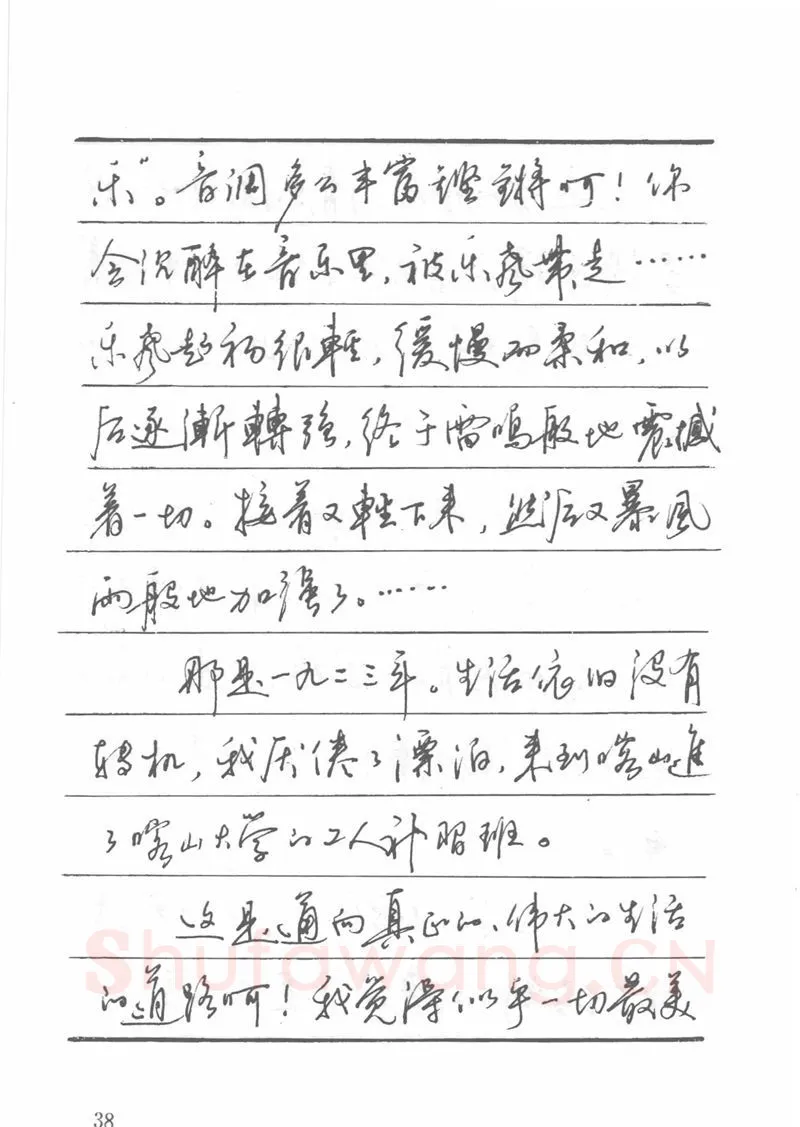 乐”。音调多么丰富铿锵呵！你
会沉醉在音乐里，被乐声带走……
乐声起初很輕，缓慢而柔和，以
后逐漸轉強，终于雷鳴般地震撼
着一切。接着又輕下来，然后又暴風
雨般地加强了。……
那是一九二三年。生活依旧没有
转机，我厌倦了漂泊，来到喀山進
了喀山大学的工人补習班。
这是通向真正的、伟大的生活
的道路呵！我觉得似乎一切最美
Shufawang.CN
38